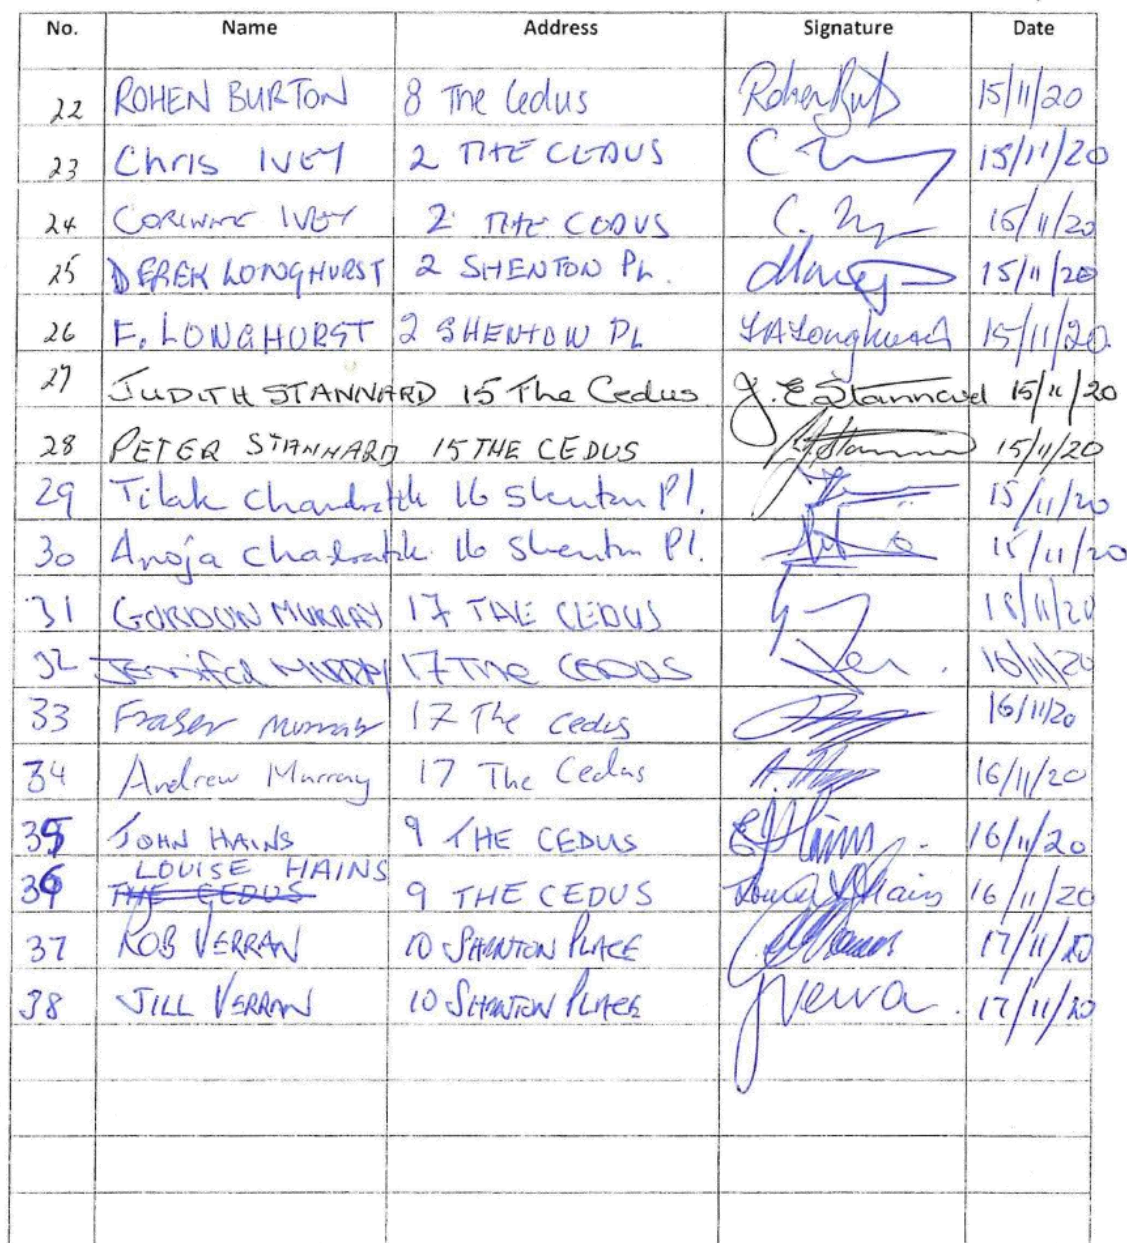 No. Name Address Signature Date
22 ROHEN BURTON 8 The Cedus 15/11/20
23 Chris IVEY 2 THE CEDUS 15/11/20
24 CORINNE IVEY 2 THE CEDUS 15/11/20
25 DEREK LONGHURST 2 SHENTON PL. 15/11/20
26 F. LONGHURST 2 SHENTON PL 15/11/20
27 JUDITH STANNARD 15 The Cedus J. E. Stannard 15/11/20
28 PETER STANNARD 15 THE CEDUS 15/11/20
29 Tilak 16 Shenton Pl. 15/11/20
30 Anoja 16 Shenton Pl. 15/11/20
31 GORDON MURRAY 17 THE CEDUS /11/20
32 Jennifer MURRAY 17 THE CEDUS Jen. 16/11/20
33 Fraser Murray 17 The cedus 16/11/20
34 Andrew Murray 17 The Cedus 16/11/20
35 JOHN HAINS 9 THE CEDUS 16/11/20
LOUISE HAINS
36 THE CEDUS 9 THE CEDUS 16/11/20
37 ROB VERRAN 10 SHENTON PLACE 17/11/20
38 JILL VERRAN 10 SHENTON PLACE 17/11/20